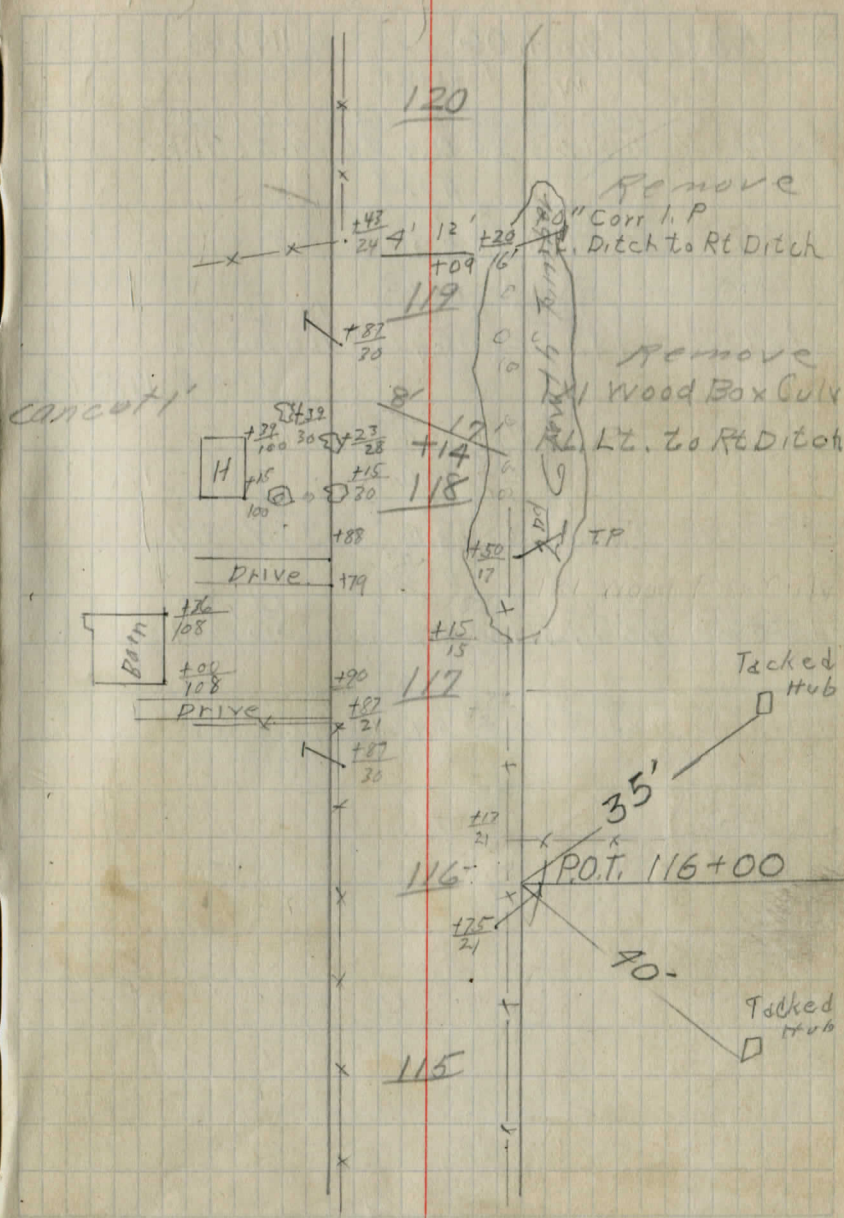 120
Remove
+43
24
4'
12'
+20
16'
" Corr I. P
Ditch to Rt Ditch
+09
119
+87
30
Remove
8'
17
Wood Box Culv
Lt. to Rt Ditch
+39
30
+39
100
+23
28
+14
H
+15
100
+15
30
118
+88
Drive
+79
+50
17
T.P
Barn
+36
108
+15
15
+00
108
+90
117
Drive
+87
21
+87
30
Tacked
Hub
35'
+17
21
116
P.O.T. 116+00
+75
21
40-
Tacked
Hub
115